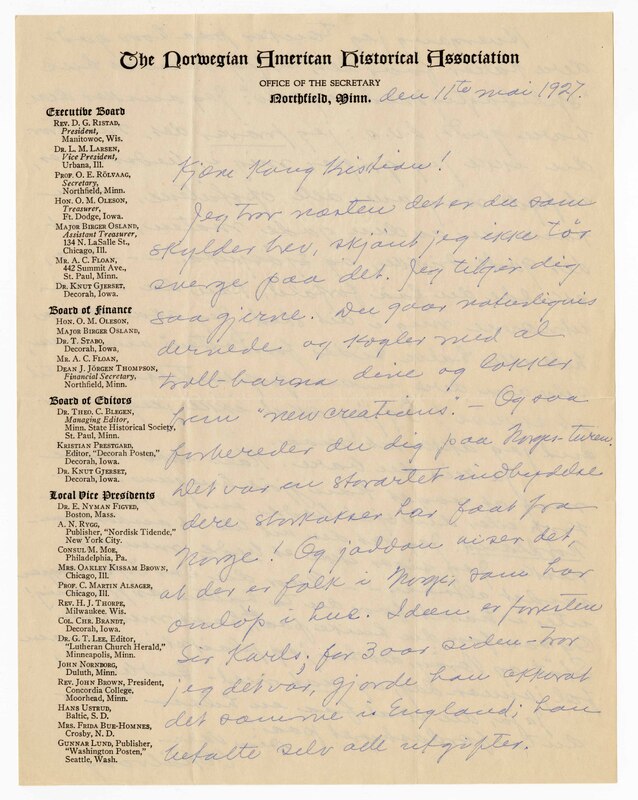 The Norwegian American Historical Association
OFFICE OF THE SECRETARY
Northfield, Minn.
den 11te mai 1927.
Executive Board
REV. D. G. RISTAD,
President,
Manitowoc, Wis.
DR. L. M. LARSEN,
Vice President,
Urbana, Ill.
PROF. O. E. RÖLVAAG,
Secretary,
Northfield, Minn.
HON. O. M. OLESON,
Treasurer,
Ft. Dodge, Iowa.
MAJOR BIRGER OSLAND,
Assistant Treasurer,
134 N. LaSalle St.,
Chicago, Ill.
MR. A. C. FLOAN,
442 Summit Ave.,
St. Paul, Minn.
DR. KNUT GJERSET,
Decorah, Iowa.
Board of Finance
HON. O. M. OLESON,
MAJOR BIRGER OSLAND,
DR. T. STABO,
Decorah, Iowa,
MR. A. C. FLOAN,
DEAN J. JÖRGEN THOMPSON,
Financial Secretary,
Northfield, Minn.
Board of Editors
DR. THEO. C. BLEGEN,
Managing Editor,
Minn. State Historical Society,
St. Paul, Minn.
KRISTIAN PRESTGARD,
Editor, "Decorah Posten,"
Decorah, Iowa.
DR. KNUT GJERSET,
Decorah, Iowa.
Local Vice Presidents
DR. E. NYMAN FIGVED,
Boston, Mass.
A. N. RYGG,
Publisher, "Nordisk Tidende,"
New York City.
CONSUL M. MOE,
Philadelphia, Pa.
MRS. OAKLEY KISSAM BROWN,
Chicago, Ill.
PROF. C. MARTIN ALSAGER,
Chicago, Ill.
REV. H. J. THORPE,
Milwaukee, Wis.
COL. CHR. BRANDT,
Decorah, Iowa.
DR. G. T. LEE, Editor,
"Lutheran Church Herald,"
Minneapolis, Minn.
JOHN NORNBORG,
Duluth, Minn.
REV. JOHN BROWN, President,
Concordia College,
Moorhead, Minn.
HANS USTRUD,
Baltic, S. D.
MRS. FRIDA BUE-HOMNES,
Crosby, N. D.
GUNNAR LUND, Publisher,
"Washington Posten,"
Seattle, Wash.
Kjære Kong Kristian!
Jeg tror næsten det er du som
skylder brev, skjönt jeg ikke tör
sverge paa det. Jeg tilgir dig
saa gjerne. Du gaar naturligvis
dernede og kogler med al
troll-barna dine og lokker
frem "new creations". – Og saa
forbereder du dig paa Norges-turen.
Det var en storartet indbydelse
dere storkakser har faat fra
Norge! Og jaddan viser det,
at der er folk i Norge som har
omlöp i hue. Ideen er forresten
Sir Karls; for 3 aar siden – tror
jeg det var, gjorde han akkorat
det samme i England; han
betalte selv alle utgifter.